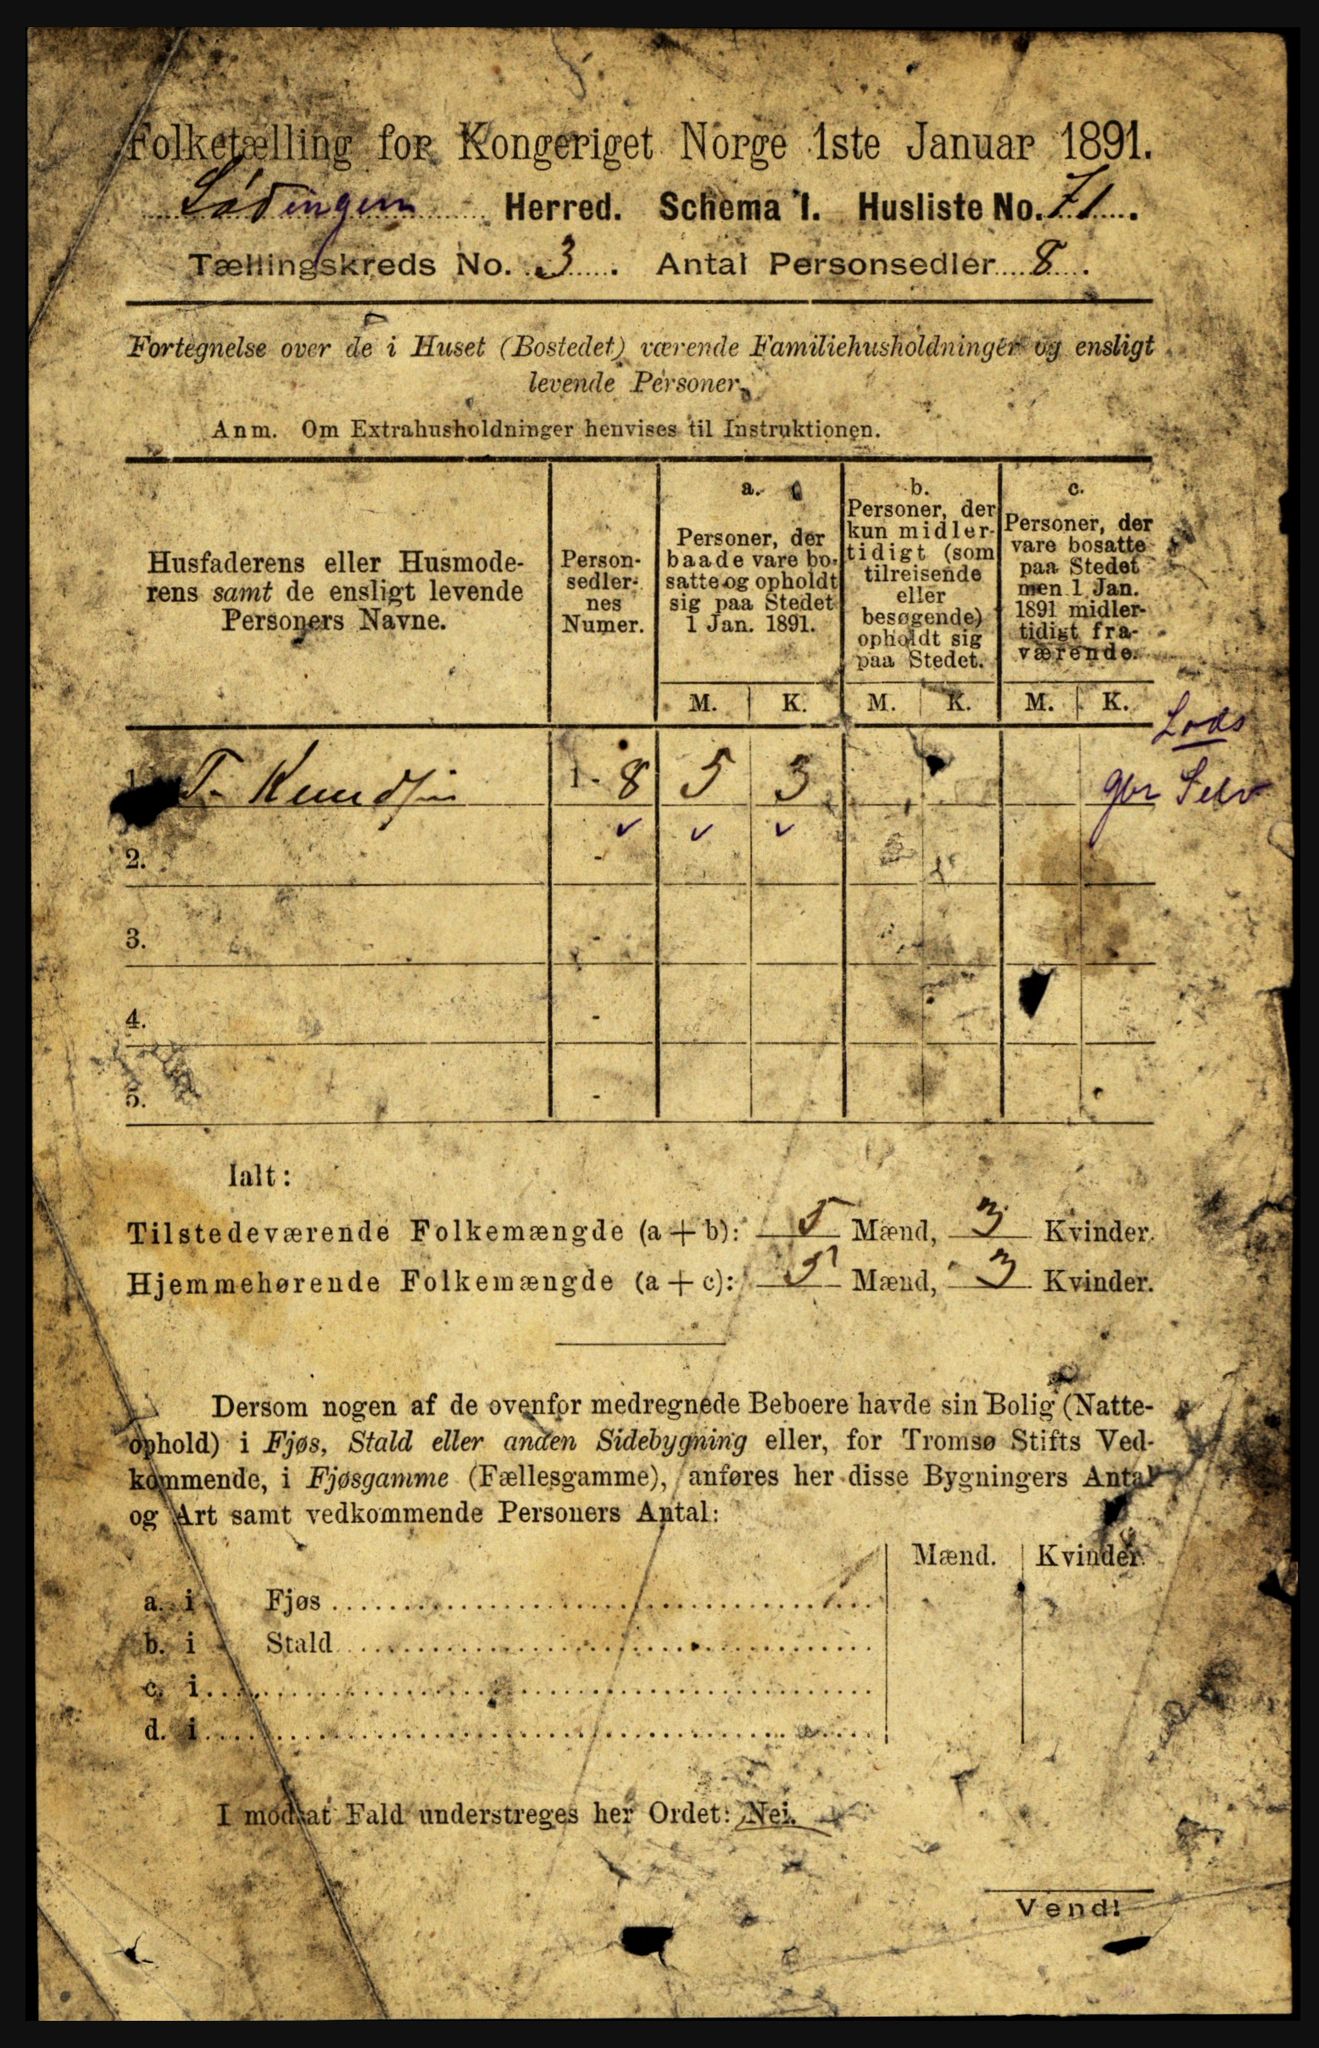 Folketælling for Kongeriget Norge 1ste Januar 1891.
Lødingen Herred. Schema 1. Husliste No. 71.
Tællingskreds No. 3. Antal Personsedler 8.
Fortegnelse over de i Huset (Bostedet) værende Familiehusholdninger og ensligt
levende Personer.
Anm. Om Extrahusholdninger henvises til Instruktionen.
Husfaderens eller Husmode-
rens samt de ensligt levende
Personers Navne.
Person-
sedler-
nes
Numer.
a.
Personer, der
baade vare bo-
satte og opholdt
sig paa Stedet
1 Jan. 1891.
b.
Personer, der
kun midler-
tidigt (som
tilreisende
eller
besøgende)
opholdt sig
paa Stedet.
c.
Personer, der
vare bosatte
paa Stedet
men 1 Jan.
1891 midler-
tidigt fra-
værende.
M. K. M. K. M. K.
Lods
1. T. Knudsen 1 - 8 5 3 gbr Selv
2. -
3. -
4. -
5. -
Ialt:
Tilstedeværende Folkemængde (a + b): 5 Mænd, 3 Kvinder.
Hjemmehørende Folkemængde (a + c): 5 Mænd, 3 Kvinder.
Dersom nogen af de ovenfor medregnede Beboere havde sin Bolig (Natte-
ophold) i Fjøs, Stald eller anden Sidebygning eller, for Tromsø Stifts Ved-
kommende, i Fjøsgamme (Fællesgamme), anføres her disse Bygningers Antal
og Art samt vedkommende Personers Antal:
Mænd. Kvinder.
a. i Fjøs
b. i Stald
c. i
d. i
I modsat Fald understreges her Ordet: Nei.
Vend!